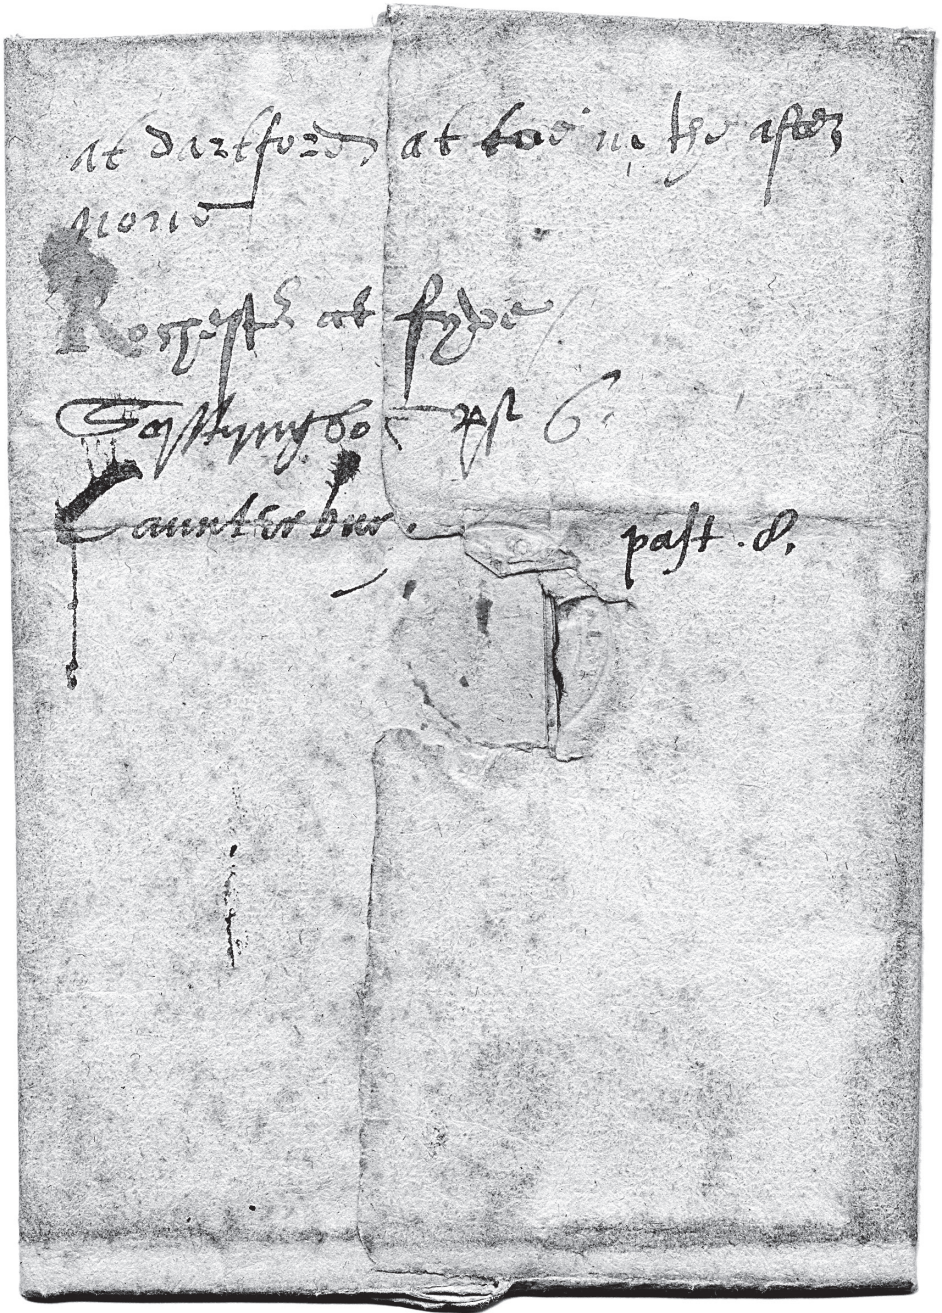 at dartford at toe in the after
none
Rochestr at fyve
Syttyngbo past 6
Caunterbury past .8.